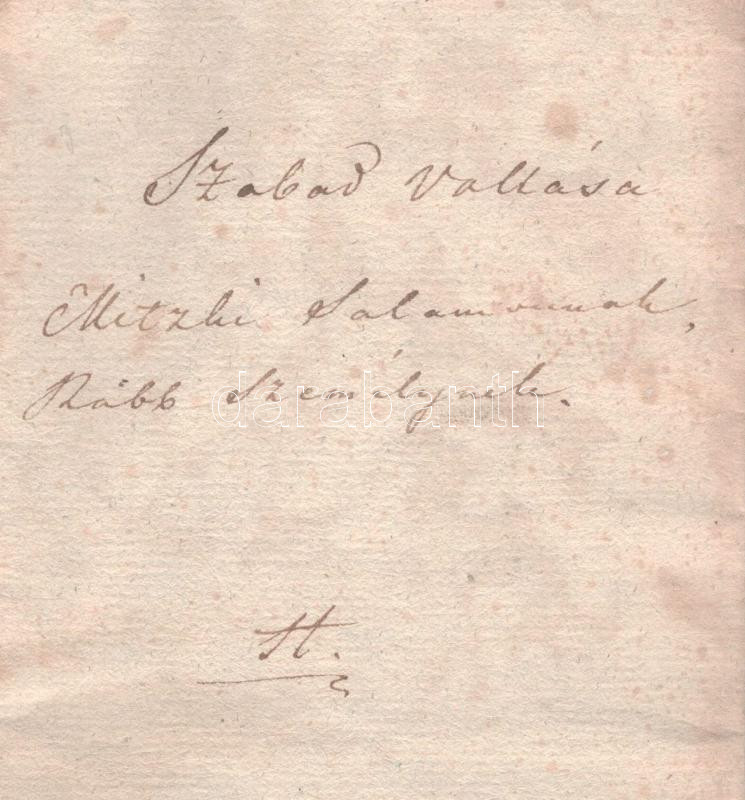 Szabad vallása
Mitzki Salamonnak,
Rább Személynek.
H.
darabanth